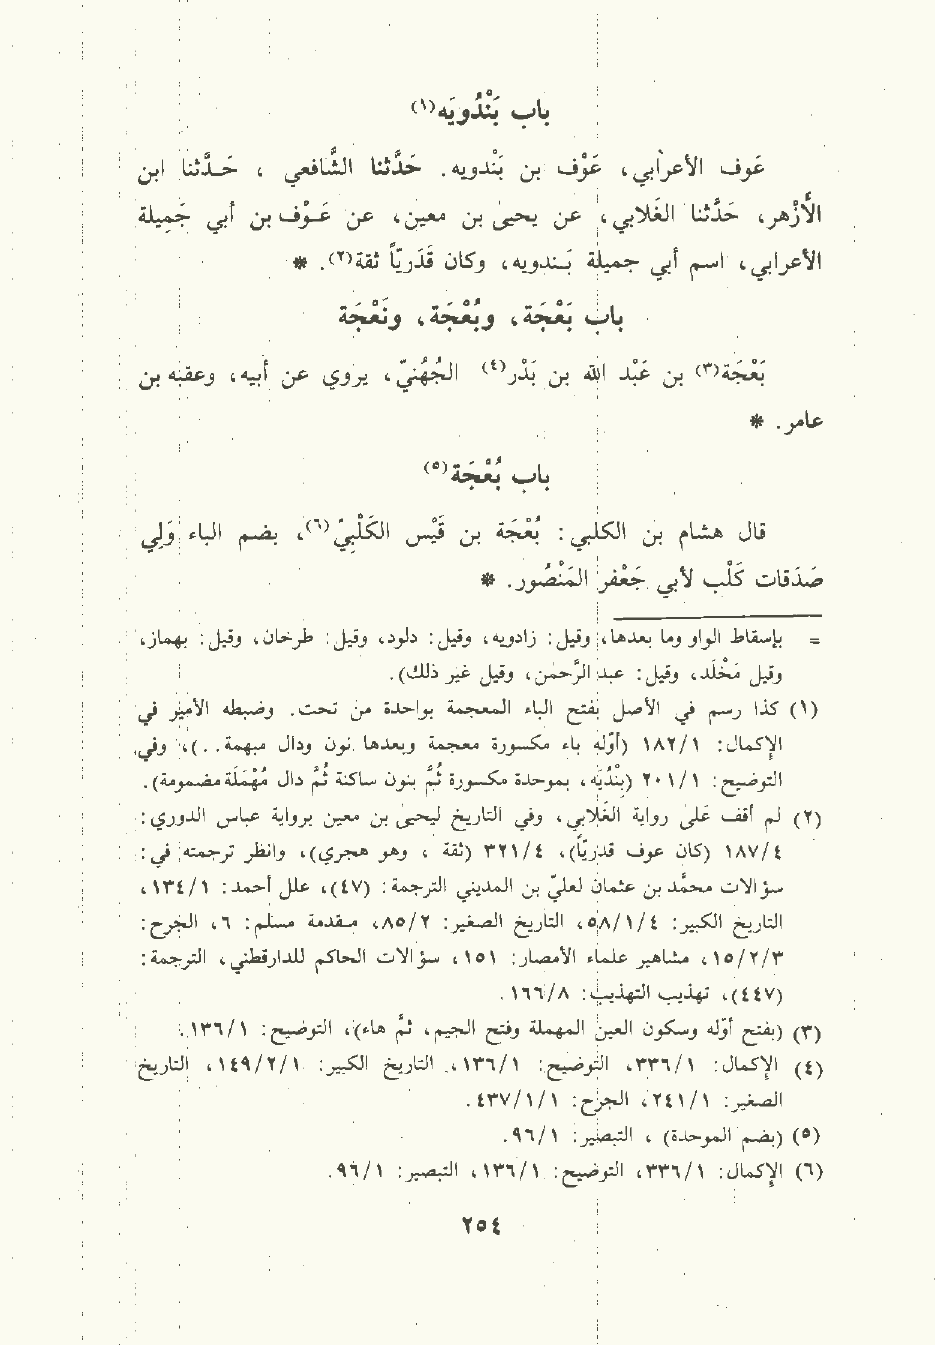 باب بَنْدُويَه(١)
عَوف الأعرابي، عَوْف بن بَنْدويه. حَدَّثنا الشَّافعي ، حَـدَّثنا ابن
الأَزْهر، حَدَّثنا الغَلابي، عن يحيىٰ بن معين، عن عَـوْف بن أبي جَمِيلة
الأعرابي، اسم أبي جميلة بَـندويه، وكان قَدَريّاً ثقة(٢). *
باب بَعْجَة، وبُعْجَة، ونَعْجَة
بَعْجَة(٣) بن عَبْد الله بن بَدْر(٤) الجُهُنيّ، يروي عن أبيه، وعقبه بن
عامر. *
باب بُعْجَة(٥)
قال هشام بن الكلبي: بُعْجَة بن قَيْس الكَلْبِيّ(٦)، بضم الباء وَلِي
صَدَقات كَلْب لأبي جَعْفر المَنْصُور. *
= بإسقاط الواو وما بعدها، وقيل: زادويه، وقيل: دلود، وقيل: طرخان، وقيل: بهماز،
وقيل مَخْلَد، وقيل: عبد الرَّحمٰن، وقيل غير ذلك).
(١) كذا رسم في الأصل بفتح الباء المعجمة بواحدة من تحت. وضبطه الأمير في
الإكمال: ١٨٢/١ (أوّله باء مكسورة معجمة وبعدها نون ودال مبهمة. .)، وفي
التوضيح: ٢٠١/١ (بِنْدُيَه، بموحدة مكسورة ثُمَّ بنون ساكنة ثُمَّ دال مُهْمَلَة مضمومة).
(٢) لم أقف عَلىٰ رواية الغَلابي، وفي التاريخ ليحيىٰ بن معين برواية عباس الدوري:
١٨٧/٤ (كان عوف قدريّاً)، ٣٢١/٤ (ثقة ، وهو هجري)، وانظر ترجمته في:
سؤالات محمَّد بن عثمان لعليّ بن المديني الترجمة: (٤٧)، علل أحمد: ١٣٤/١،
التاريخ الكبير: ٥٨/١/٤، التاريخ الصغير: ٨٥/٢، مـقدمة مسلم: ٦، الجَرح:
١٥/٢/٣، مشاهير علماء الأمصار: ١٥١، سؤالات الحاكم للدارقطني، الترجمة:
(٤٤٧)، تهذيب التهذيب: ١٦٦/٨.
(٣) (بفتح أوّله وسكون العين المهملة وفتح الجيم، ثمّ هاء)، التوضيح: ١٣٦/١.
(٤) الإكمال: ٣٣٦/١، التوضيح: ١٣٦/١، التاريخ الكبير: ١٤٩/٢/١، التاريخ
الصغير: ٢٤١/١، الجرح: ٤٣٧/١/١.
(٥) (بضم الموحدة) ، التبصير: ٩٦/١.
(٦) الإكمال: ٣٣٦/١، التوضيح: ١٣٦/١، التبصير: ٩٦/١.
٢٥٤